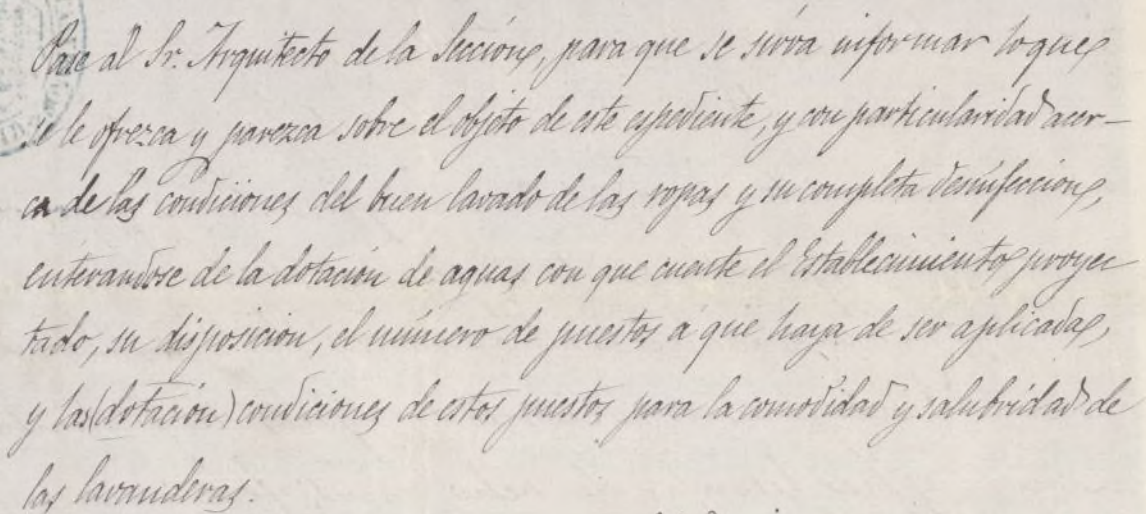 Pase al Sr. Arquitecto de la Sección, para que se sirva informar lo que
se le ofrezca y parezca sobre el objeto de este espediente, y con particularidad acer-
ca de las condiciones del buen lavado de las ropas y su completa desinfeccion,
enterandose de la dotación de aguas con que cuente el Establecimiento proyec
tado, su disposicion, el número de puestos a que haya de ser aplicada,
y las (dotación) condiciones de estos puestos para la comodidad y salubridad de
las lavanderas.